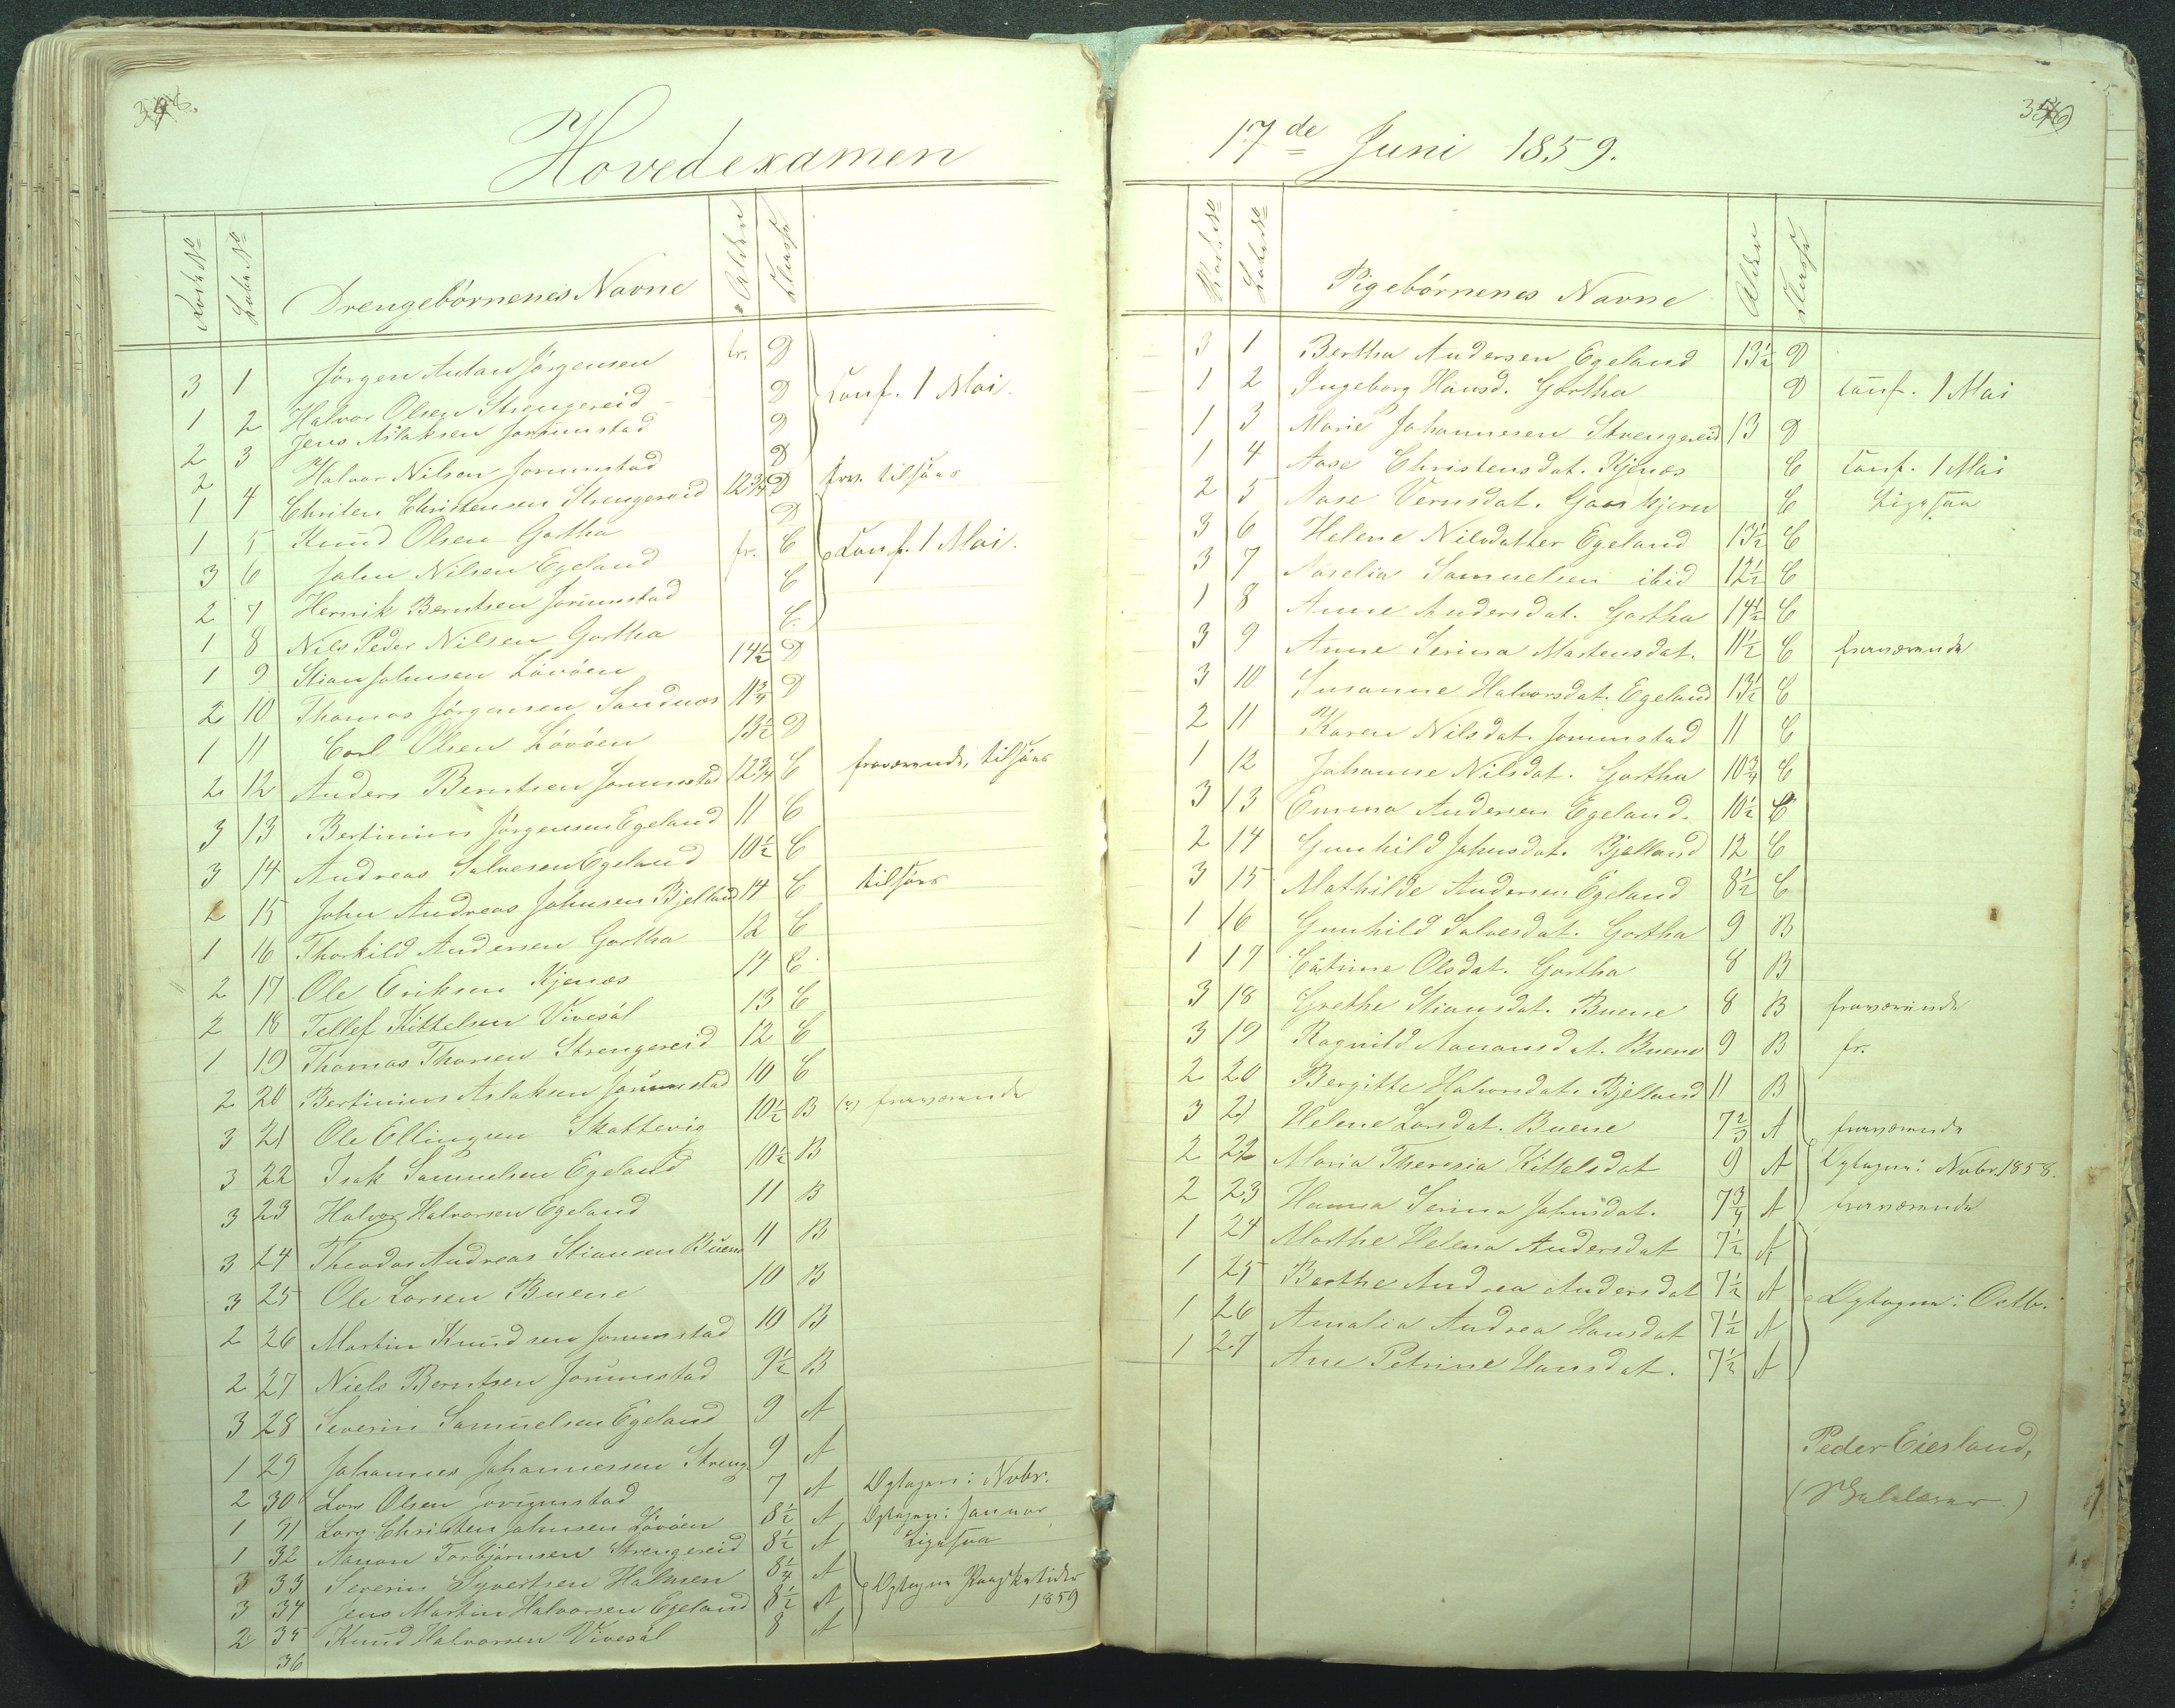 Hovedexamen
Rode No
Løbe No
Drengebörnenes Navne
Alder
Klasse
3 1 Jörgen Antan Jörgensen fr. D
1 2 Halvor Olsen Strengereid - D
Conf. 1 Mai.
2 3 Jens Aslaksen Jorunnstad D
2 Halvor Nilsen Jorunnstad D
1 4 Christen Christensen Strengereid 12¾ D frv. tilsöns
1 5 Knud Olsen Gartha D
3 6 John Nilsen Egeland fr. C
Conf. 1 Mai.
2 7 Henrik Berntsen Jorunnstad C
1 8 Nils Peder Nilsen Gartha C.
1 9 Stian Johnsen Lövöen 14½ D
2 10 Thomas Jörgensen Sandnæs 11¾ D
1 11 Carl Olsen Lövöen 13½ D
2 12 Anders Berntsen Jorunnstad 12¾ C fraværende, tilsöns
3 13 Bertinius Jörgensen Egeland 11 C
3 14 Andreas Salvesen Egeland 10½ C
2 15 John Andreas Johnsen Bjelland 14 C tilsöns
1 16 Thorkild Andersen Gartha 12 C
2 17 Ole Eriksen Kjenæs 14 C
2 18 Tellef Kittelsen Vivesöl 13 C
1 19 Thomas Thorsen Strengereid 12 C
2 20 Bertinius Aslaksen Jorunnstad 10 C
3 21 Ole Ellingsen Skattevig 10½ B fraværende
3 22 Isak Samuelsen Egeland 10½ B
3 23 Halvor Halvorsen Egeland 11 B
3 24 Theodor Andreas Stiansen Buene 11 B
3 25 Ole Larsen Buene 10 B
2 26 Martin Knudsen Jorunnstad 10 B
2 27 Niels Berntsen Jorunnstad 9½ B
3 28 Severin Samuelsen Egeland 9 A
1 29 Johannes Johannessen Streng. 9 A
2 30 Lars Olsen Jorunnstad 7 A Optagen i Novbr.
1 31 Lars Christen Johnsen Lövöen 8½ A Optagen i Januar
1 32 Aanon Torbjörnsen Strengereid 8½ A Ligesaa
3 33 Severin Syvertsen Holmen 8¼ A
Optagne Paasketider
3 34 Jens Martin Halvorsen Egeland 8½ A
1859
2 35 Knud Halvorsen Vivesöl 8 A
36
17de Juni 1859.
Rode No
Løbe No
Pigebörnenes Navne
Alder
Klasse
3 1 Bertha Andersen Egeland 13½ D
1 2 Ingeborg Hansd. Gartha D Conf. 1 Mai
1 3 Marie Johannesen Strengereid 13 D
1 4 Aase Christensdat. Kjenæs C Conf. 1 Mai
2 5 Aase Vernsdat. Gaaskjern C Ligesaa
3 6 Helene Nilsdatter Egeland 13½ C
3 7 Aaselia Samuelsen ibid 12½ C
1 8 Anne Andersdat. Gartha 14½ C
3 9 Anne Serina Martensdat. 11½ C fraværende
3 10 Susanne Halvorsdat. Egeland 13½ C
2 11 Karen Nilsdat. Jorunnstad 11 C
1 12 Johanne Nilsdat. Gartha 10¾ C
3 13 Emma Andersen Egeland. 10½ C
2 14 Gunhild Johnsdat. Bjelland 12 C
3 15 Mathilde Andersen Egeland 8½ C
1 16 Gunhild Salvesdat. Gartha 9 B
1 17 Catrine Olsdat. Gartha 8 B
3 18 Grethe Stiansdat. Buene 8 B fraværende
3 19 Ragnild Aanonsdat. Buene 9 B fr.
2 20 Bergitte Halvorsdat. Bjelland 11 B
3 21 Helene Larsdat. Buene 7⅔ A fraværende
2 22 Maria Theresia Kittelsdat 9 A Optagen i Novbr. 1858.
2 23 Hanna Serina Johnsdat. 7¾ A fraværende
1 24 Marthe Helena Andersdat 7½ A
1 25 Berthe Andrea Andersdat 7½ A
Optagen i Octbr.
1 26 Amalia Andrea Hansdat 7½ A
1 27 Ane Petrine Hansdat. 7½ A
Peder Eiesland,